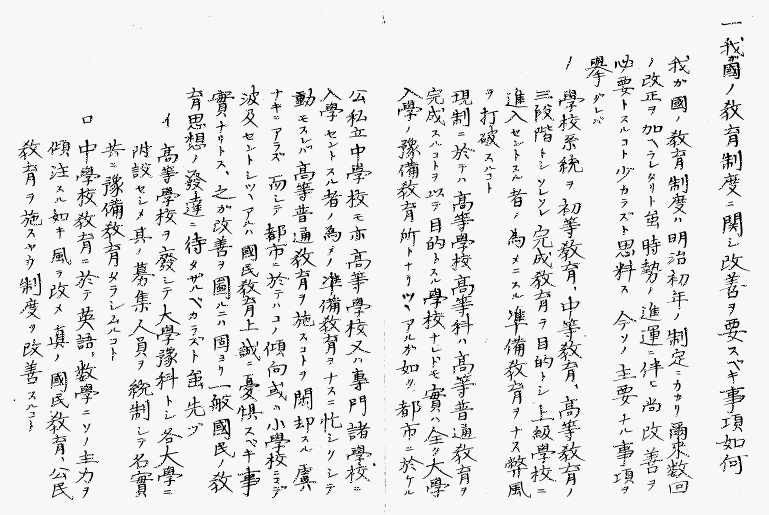 一我國ノ敎育制度ニ關シ改善ヲ要スベキ事項如何
我ガ國ノ敎育制度ハ明治初年ノ制定ニカカリ爾來數回
ノ改正ヲ加ヘラレタリト雖、時勢ノ進運ニ伴ヒ尚改善ヲ
必要トスルコト少カラズト思料ス 今ソノ主要ナル事項ヲ
擧グレバ
ノ 學校系統ヲ初等敎育、中等敎育、高等敎育ノ
三段階トシソレゾレ完成敎育ヲ目的トシ上級學校ニ
進入セントスル者ノ爲メニスル準備敎育ヲナス弊風
ヲ打破スルコト
現制ニ於テハ高等學校高等科ハ高等普通敎育ヲ
完成スルコトヲ以テ目的トスル學校ナレドモ實ハ全ク大學
入學ノ豫備敎育所トナリツヽアルガ如ク、都市ニ於ケル
公私立中學校モ亦高等學校又ハ專門諸學校ニ
入學セントスル者ノ爲メノ準備敎育ヲナスニ忙シクシテ
動モスレバ高等普通敎育ヲ施スコトヲ閑却スル虞
ナキニアラズ 而シテ都市ニ於テハコノ傾向或ハ小學校ニマデ
波及セントシツヽアルハ國民敎育上誠ニ憂惧スベキ事
實ナリトス、之ガ改善ヲ圖ルニハ固ヨリ一般國民ノ敎
育思想ノ發達ニ待タザルベカラズト雖先ヅ
イ 高等學校ヲ廢シテ大學豫科トシ各大學ニ
附設セシメ其ノ募集人員ヲ統制シテ名實
共ニ豫備敎育タラシムルコト
ロ 中學校敎育ニ於テ英語、數學ニソノ主力ヲ
傾注スル如キ風ヲ改メ眞ノ國民敎育、公民
敎育ヲ施スヤウ制度ヲ改善スルコト